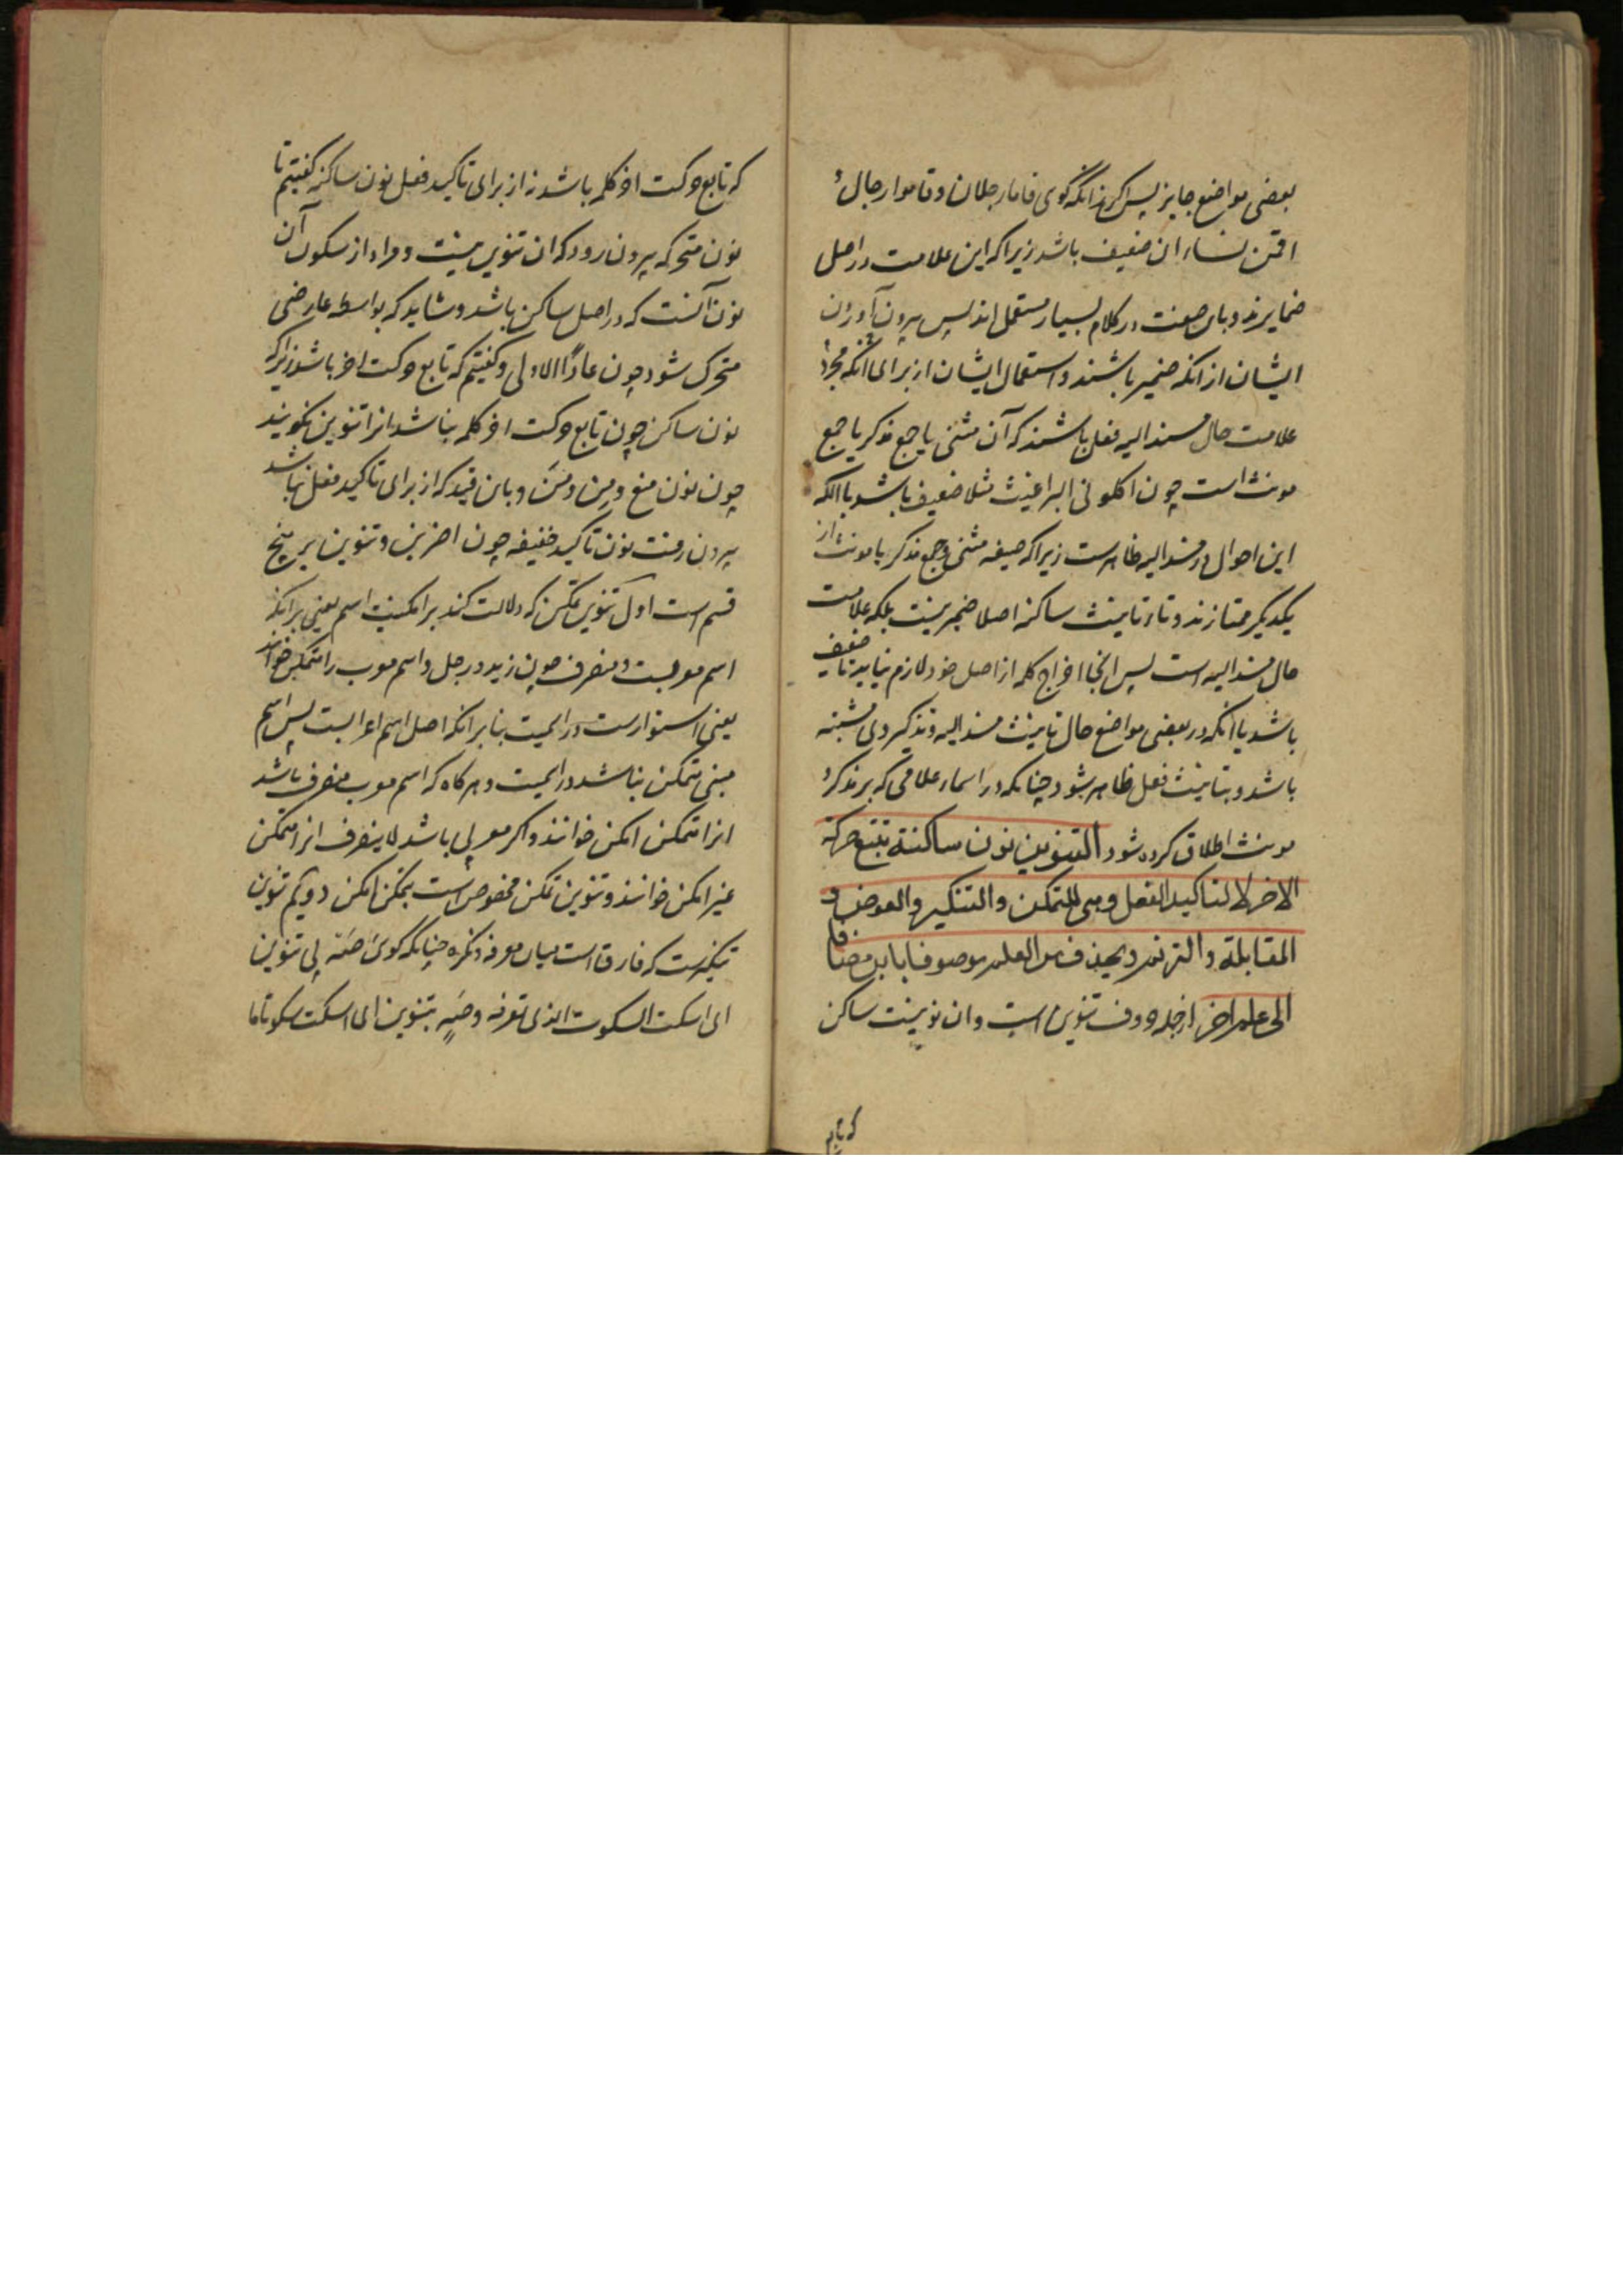 بعضی مواضع جایز پس اگر چنانکه گوی قاما رجلان و قاموا رجال و
اقمن نساء ان ضعیف باشد زیرا که این علامت در اصل
ضمایرند و باین صفت در کلام بسیار مستعمل اند پس بیرون آوردن
ایشان از آنکه ضمیر باشند و استعمال ایشان از برای آنکه مجرد
علامت حال مسند الیه فعل باشند که آن مثنی یا جمع مذکر یا جمع
مونث است چون اکلونی البراغیث مثلا ضعیف باشد با آنکه
این احوال در مسند الیه ظاهرست زیرا که صیغه مثنی و جمع مذکر یا مونث از
یکدیگر ممتازند و تاء تانیث ساکنه اصلا ضمیر نیست بلکه علامت
حال مسند الیه است پس انجا اخراج کلمه از اصل خود لازم نیاید تا ضعیف
باشد با آنکه در بعضی مواضع حال تانیث مسند الیه و تذکیر وی مشتبه
باشد و بتانیث فعل ظاهر شود چنانکه در اسماء علامی که بر مذکر و
مونث اطلاق کرده شود التنوین نون ساکنة تتبع حرکة
الاخر لا لتاکید الفعل وهی للتمکن والتنکیر والعوض و
المقابلة والترنم ویحذف من العلم موصوفا بابن مضافا
الی علم اخر از جمله حروف تنوین است و ان نونیست ساکن
که تابع
که تابع حرکت اخر کلمه باشد نه از برای تاکید فعل نون ساکنه گفتیم تا
نون متحرکه بیرون رود که ان تنوین نیست و مراد از سکون آن
نون آنست که در اصل ساکن باشد و شاید که بواسطه عارضی
متحرک شود چون عادًا الاولی و گفتیم که تابع حرکت اخر باشد زیرا که
نون ساکن چون تابع حرکت اخر کلمه نباشد انرا تنوین نگویند
چون نون منع و مِن و مَن و باین قید که از برای تاکید فعل نباشد
بیرون رفت نون تاکید خفیفه چون اضربن و تنوین بر پنج
قسم است اول تنوین تمکن که دلالت کند بر امکنیت اسم یعنی بر آنکه
اسم معربست و منصرف چون زید و رجل و اسم معرب را متمکن خوانند
یعنی استوارست در اسمیت بنا بر انکه اصل اسم اعرابست پس اسم
مبنی متمکن نباشد در اسمیت و هرگاه که اسم معرب منصرف باشد
انرا متمکن امکن خوانند و اگر معربی باشد لا ینصرف انرا متمکن
غیر امکن خوانند و تنوین تمکن مخصوص است بتمکن امکن دویم تنوین
تنکیرست که فارق است میان معرفه و نکره چنانکه گوی صَهْ بی تنوین
ای اسکت السکوت الذی تعرفه و صَهٍ بتنوین ای اسکت سکوتا ما